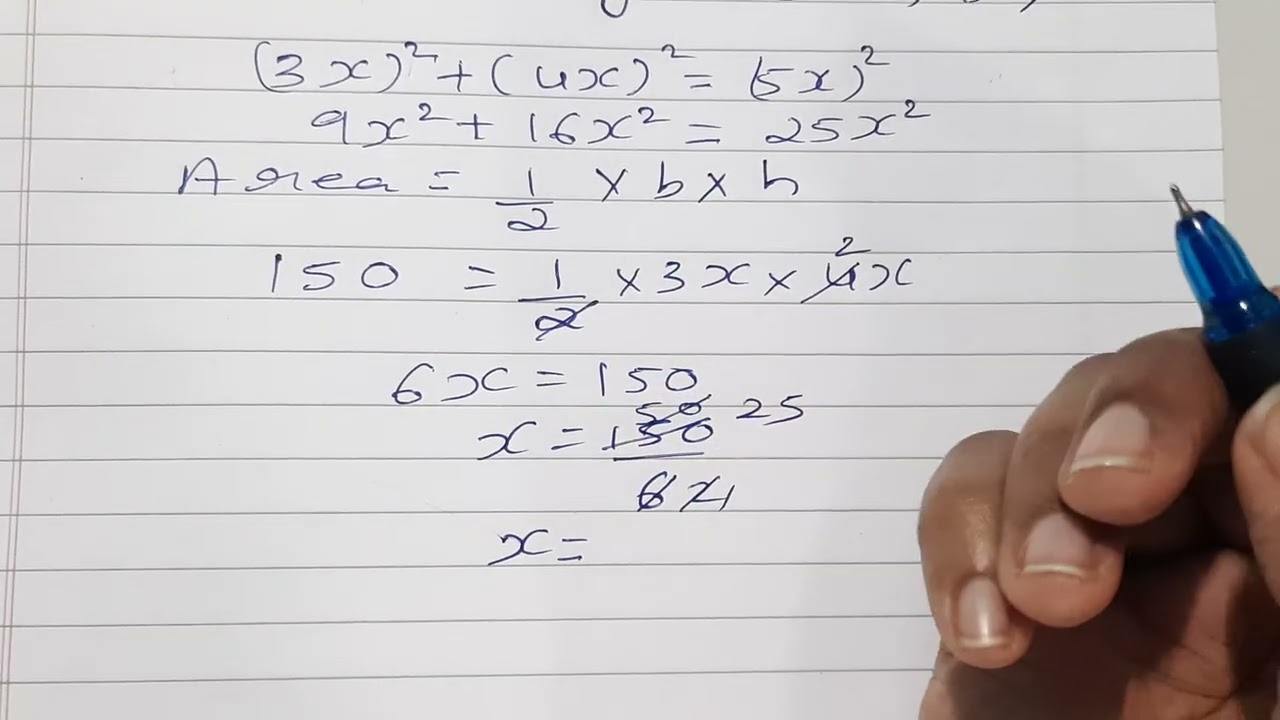 (3x)² + (4x)² = (5x)²
9x² + 16x² = 25x²
Area = 1/2 × b × h
150 = 1/2 × 3x × 4x 2
6x = 150
x = 150/6 50 25 2 1
x =